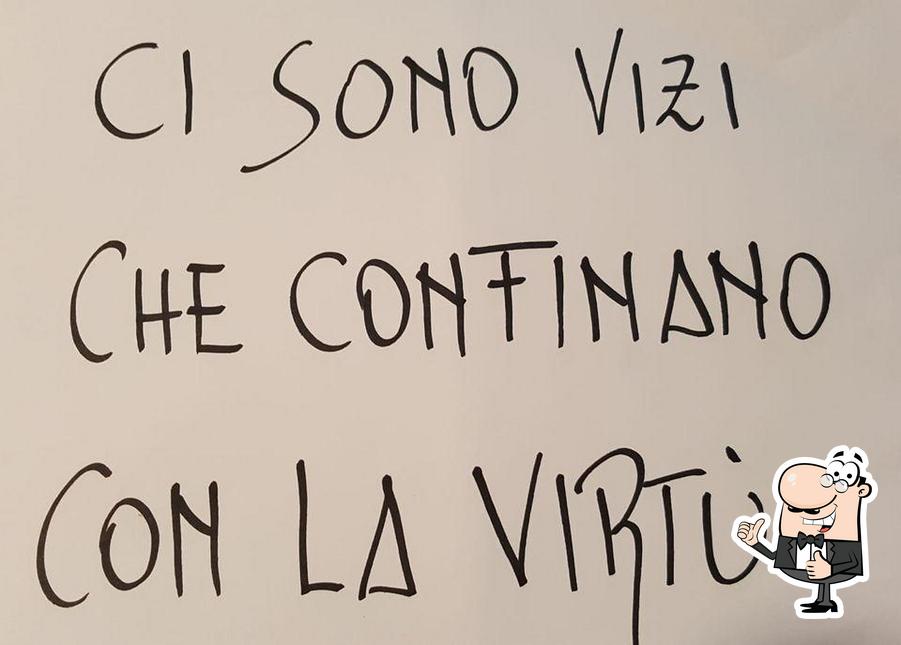 CI SONO VIZI
CHE CONFINANO
CON LA VIRTÙ